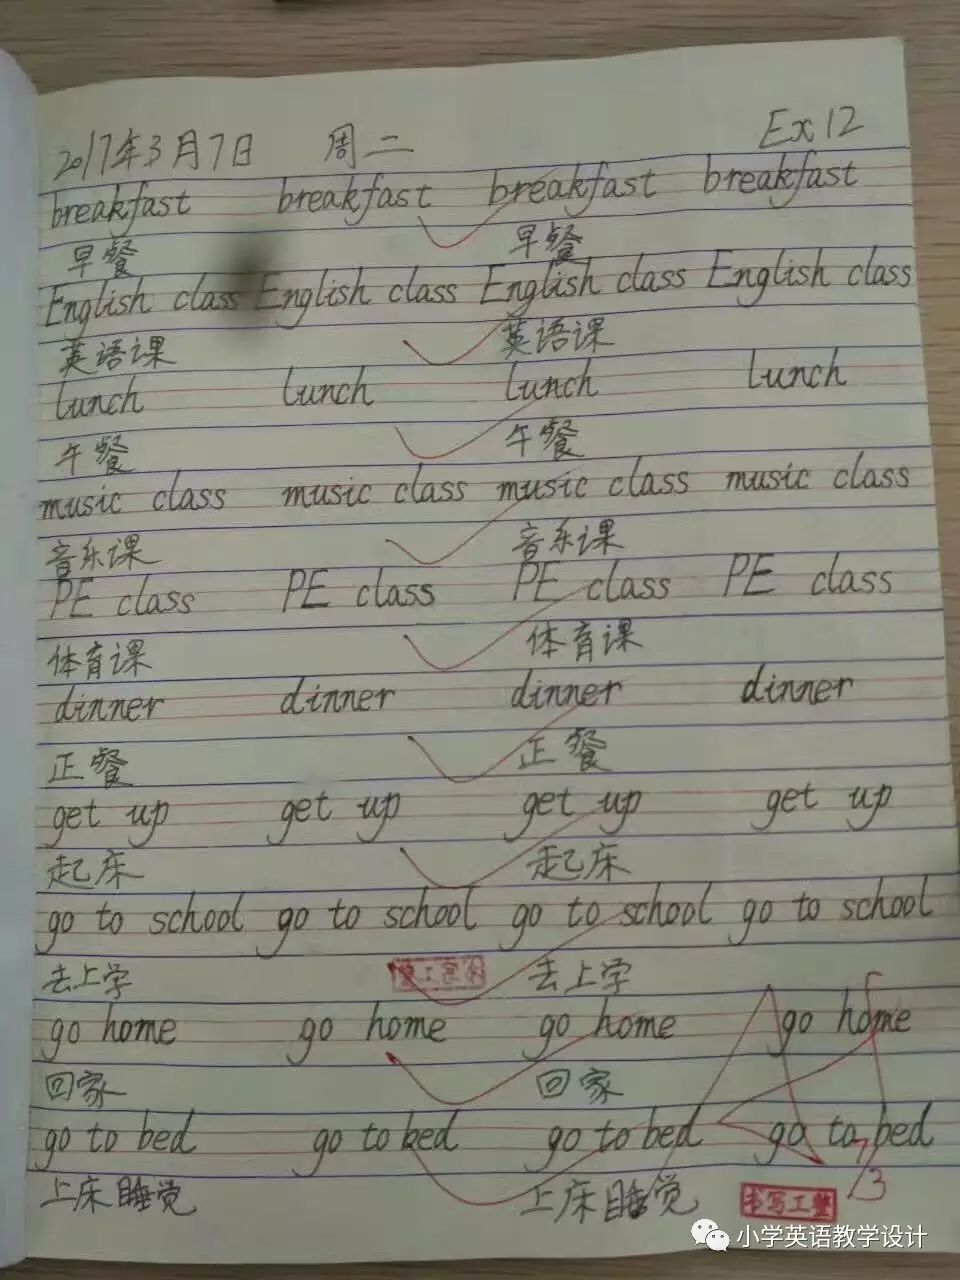 2017年3月7日 周二 Ex 12
breakfast breakfast breakfast breakfast
早餐 早餐
English class English class English class English class
英语课 英语课
lunch lunch lunch lunch
午餐 午餐
music class music class music class music class
音乐课 音乐课
PE class PE class PE class PE class
体育课 体育课
dinner dinner dinner dinner
正餐 正餐
get up get up get up get up
起床 起床
go to school go to school go to school go to school
去上学 去上学
go home go home go home go home
回家 回家
go to bed go to bed go to bed go to bed
上床睡觉 上床睡觉 书写工整
小学英语教学设计